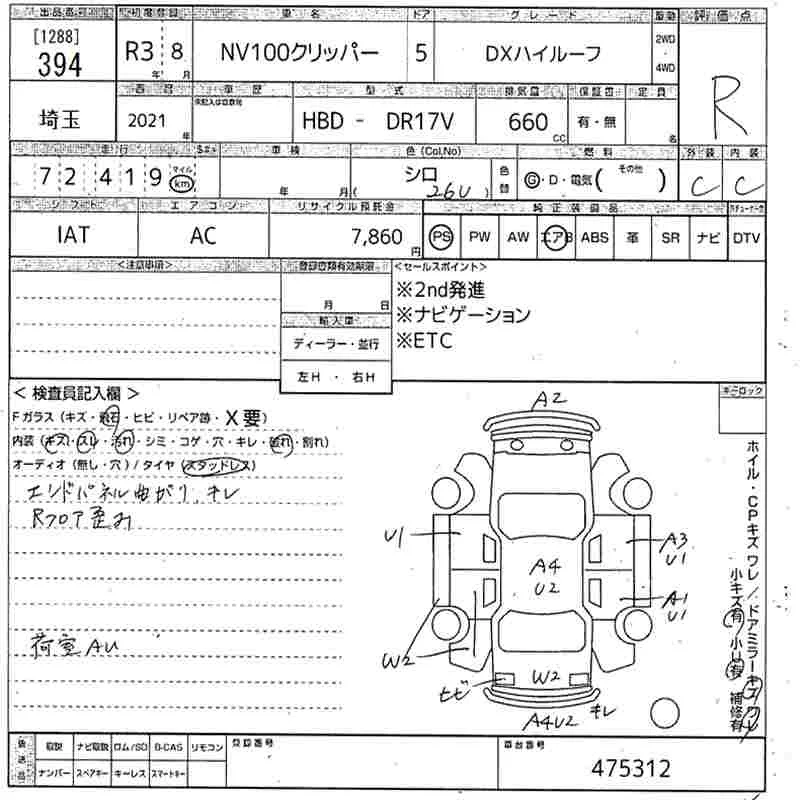 出品番号 初度登録 車名 ドア グレード 駆動 評価点
[1288]
394 R3 年 8 月 NV100クリッパー 5 DXハイルーフ 2WD ・ 4WD R
年 車歴 型式 排気量 保証書 定員
埼玉 2021 年 HBD - DR17V 660 CC 有・無 名
走行 車検 色(Col.No) 燃料 外装 内装
72419 マイル km 年 月 シロ ( 26U ) 色替 G・D・電気( その他 ) C C
シフト エアコン リサイクル預託金 純正装備品
IAT AC 7,860 円 PS PW AW エアB ABS 革 SR ナビ DTV
<注意事項> 登録書類有効期限 <セールスポイント>
月 日
※2nd発進
※ナビゲーション
※ETC
輸入車
ディーラー・並行
左H ・ 右H
<検査員記入欄> キーロック
Fガラス (キズ・飛石・ヒビ・リペア跡・X要)
内装 (キズ・スレ・汚れ・シミ・コゲ・穴・キレ・破れ・割れ)
オーディオ (無し・穴) / タイヤ (スタッドレス)
エンドパネル曲がり、キレ
Rフロア歪み
荷室AU
A2
U1
A3
U1
A4
U2
A1
U1
W2
W2
ヒビ
A4U2 キレ
ホイル・CPキズワレ/ドアミラーキズワレ
小キズ有/小U有 補修有
後送品 取説 ナビ取説 ロム/SD B-CAS リモコン 登録番号 車台番号
ナンバー スペアキー キーレス スマートキー
475312